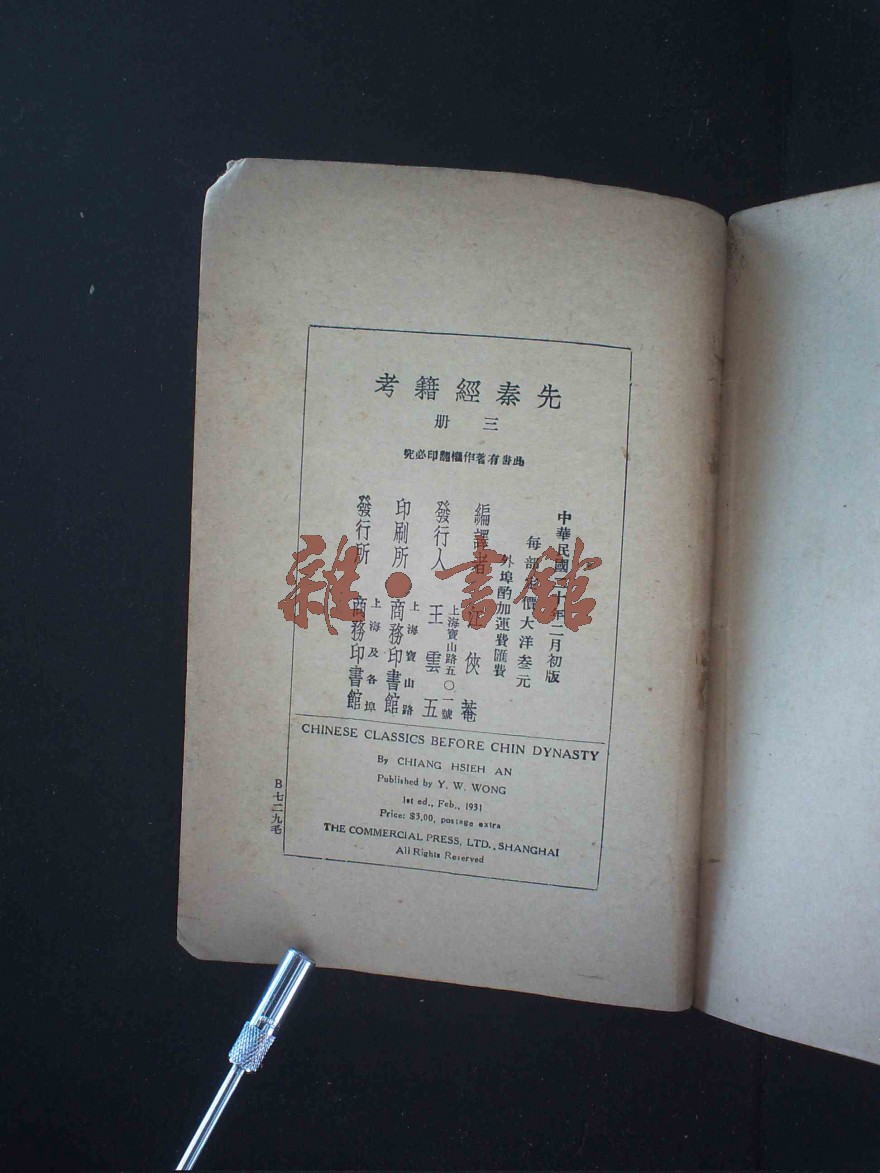 先秦經籍考
三册
此書有著作權翻印必究
中華民國二十年二月初版
每部定價大洋叁元
外埠酌加運費匯費
編譯者 江俠菴
發行人 王雲五
上海寶山路五〇一號
印刷所 商務印書館
上海寶山路
發行所 商務印書館
上海及各埠
CHINESE CLASSICS BEFORE CHIN DYNASTY
By CHIANG HSIEH AN
Published by Y. W. WONG
1st ed., Feb., 1931
Price: $3.00, postage extra
THE COMMERCIAL PRESS, LTD., SHANGHAI
All Rights Reserved
B七二九毛
雜·書館